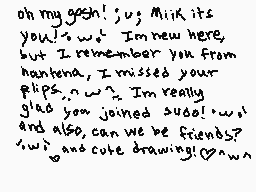 oh my gosh! ;u; Miik its
you! ^•w•^ Im new here,
but I remember you from
hantena, I missed your
flips ^w^ Im really
glad you joined sudo! •w•
and also, can we be friends?
•w• ♥ and cute drawing! ♡^w^